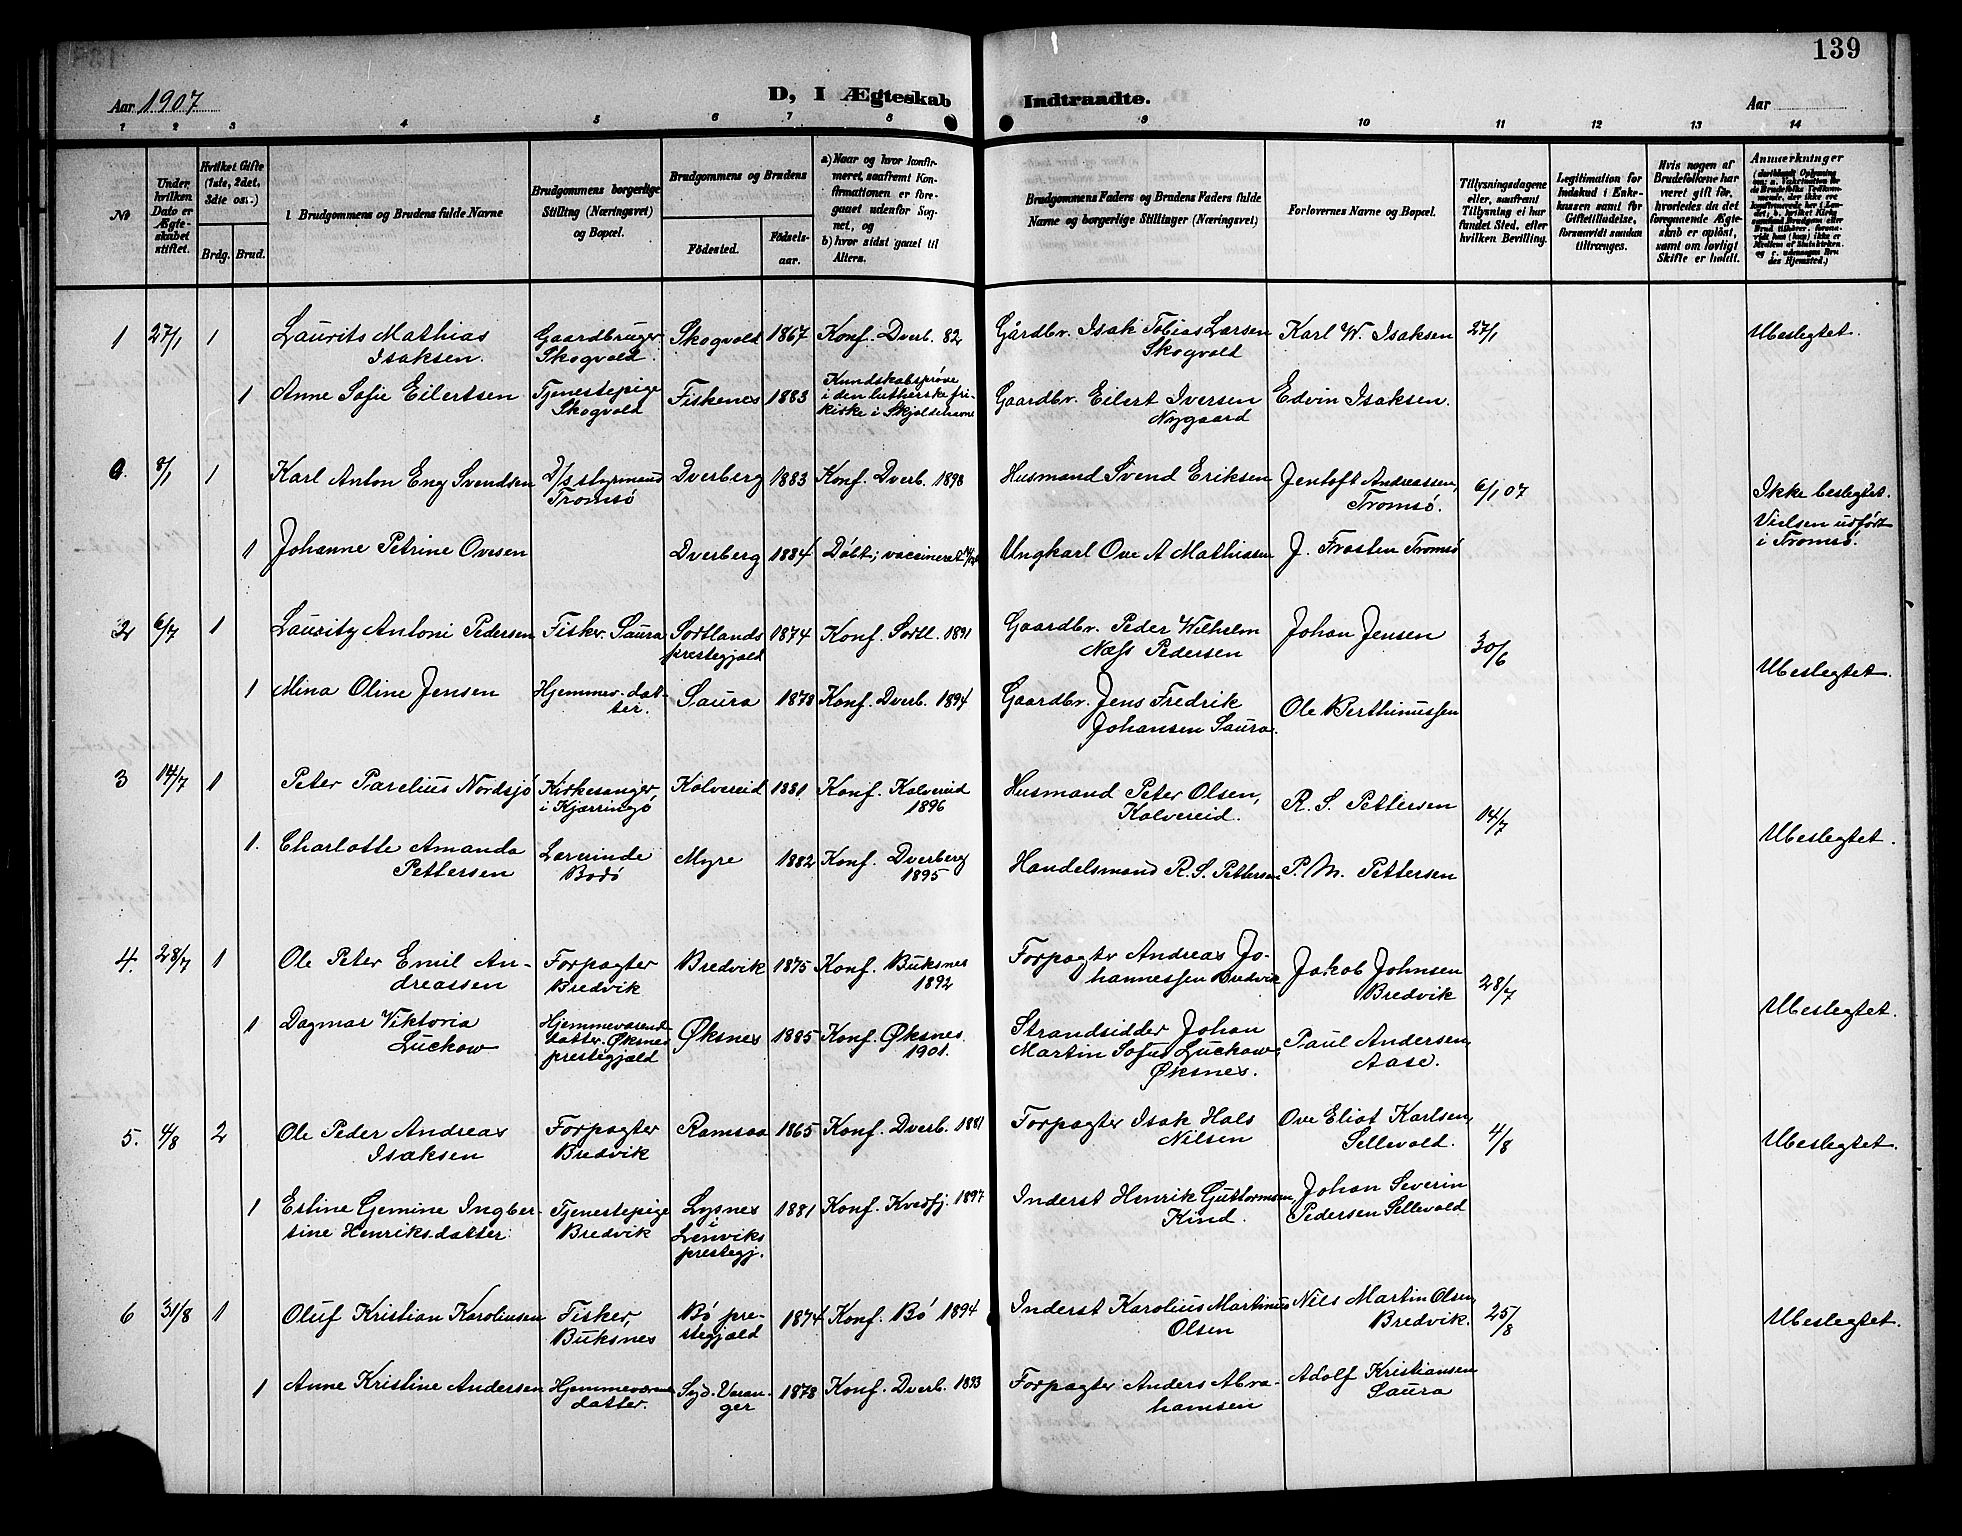 139
Aar 1907
D, I Ægteskab Indtraadte.
Aar
1 2 3 4 5 6 7 8 9 10 11 12 13 14
No
Under hvilken Dato er Ægteskabet stiftet.
Hvilket Gifte (1ste, 2det, 3die osv.)
Brdg. Brud.
1. Brudgommens og Brudens fulde Navne
Brudgommens borgerlige Stilling (Næringsvei) og Bopæl.
Brudgommens og Brudens
Fødested.
Fødselsaar.
a) Naar og hvor konfirmeret, saafremt Konfirmationen er foregaaet udenfor Sognet, og
b) hvor sidst gaaet til Alters.
Brudgommens Faders og Brudens Faders fulde Navne og borgerlige Stillinger (Næringsvei)
Forlovernes Navne og Bopæl.
Tillysningsdagene eller, saafremt Tillysning ei har fundet Sted, efter hvilken Bevilling.
Legitimation for Indskud i Enkekassen samt for Giftetilladelse, forsaavidt saadan tiltrænges.
Hvis nogen af Brudefolkene har været gift før, hvorledes da det foregaaende Ægteskab er opløst, samt om lovligt Skifte er holdt.
Anmærkninger
1 27/1 1 Laurits Mathias Isaksen. Gaardbruger Skogvold. Skogvold 1867 Konf. Dverb. 82 Gårdbr. Isak Tobias Larsen Skogvold Karl W. Isaksen 27/1 Ubeslegtet.
1 Anne Sofie Eilertsen Tjenestepige Skogvold Fiskenes 1883 Kundskabsprøve i den lutherske frikirke i Skjolsehavn Gaardbr. Eilert Iversen Nygaard Edvin Isaksen.
8/1 1 Karl Anton Eng Svendsen D/s styrmand Tromsø Dverberg 1883 Konf. Dverb. 1898 Husmand Svend Eriksen Jentoft Andreassen, Tromsø. 6/1 07 Ikke beslegtet. Vielsen udført i Tromsø.
1 Johanne Petrine Ovesen Dverberg 1884 Døbt; vaccineret Ungkarl Ove A Mathissen J. Frosten Tromsø
2 6/7 1 Lauritz Antoni Pedersen Fisker. Saura Sortlands prestegjæld 1874 Konf. Sortl. 1891 Gaardbr. Peder Wilhelm Næss Pedersen Johan Jensen 30/6 Ubeslegtet.
1 Mina Oline Jensen Hjemmev. datter. Saura 1878 Konf. Dverb. 1894 Gaardbr. Jens Fredrik Johansen Saura. Ole Berthinussen
3 14/7 1 Peter Parelius Nordsjø Kirkesanger i Kjærringø Kolvereid 1881 Konf. Kolvereid 1896 Husmand Peter Olsen, Kolvereid. R. S. Pettersen 14/7 Ubeslegtet.
1. Charlotte Amanda Pettersen Lærerinde Bodø Myre 1882 Konf. Dverberg 1895 Handelsmand R. S. Pettersen P. M. Pettersen
4. 28/7 1 Ole Peter Emil Andreassen Forpagter Bredvik Bredvik 1875 Konf. Buksnes 1892 Forpagter Andreas Johannessen Bredvik Jakob Johnsen Bredvik 28/7 Ubeslegtet.
1 Dagmar Viktoria Luckow Hjemmeværend datter. Øksnes prestegjæld Øksnes 1885 Konf. Øksnes 1901. Strandsidder Johan Martin Sofus Luckow, Øksnes. Paul Andersen Aase.
5. 4/8 2 Ole Peder Andreas Isaksen Forpagter Bredvik Ramsaa 1865 Konf. Dverb. 1881 Forpagter Isak Hals Nilsen Ove Eliot Karlsen, Sellevold. 4/8 Ubeslegtet.
1 Estine Gemine Ingbertine Henriksdatter. Tjenestepige Bredvik Lysnes i Lenviks prestegj. 1881 Konf. Kvedfj. 1897 Inderst Henrik Guttormsen Kind. Johan Severin Pedersen Sellevold
6 31/8 1 Oluf Kristian Karoliusen Fisker, Buksnes Bø prestegjæld 1874 Konf. Bø 1894 Inderst Karolius Martinus Olsen Nils Martin Olsen, Bredvik. 25/8 Ubeslegtet.
1 Anne Kristine Andersen Hjemmeværende datter. Syd. Varanger 1878 Konf. Dverb. 1893 Forpagter Anders Abrahamsen Adolf Kristiansen Saura